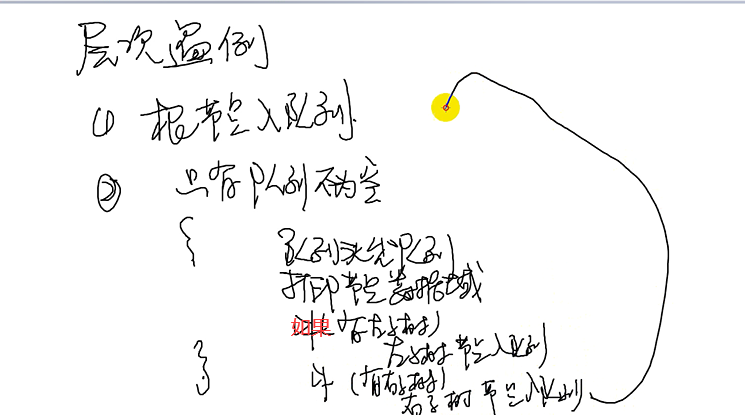 层次遍例
(1) 根节点入队列
② 只有队列不为空
{
队列头先队列
打印节点数据域
如果 (有左子树)
左子树节点入队列
} (有右子树)
右子树节点入队列